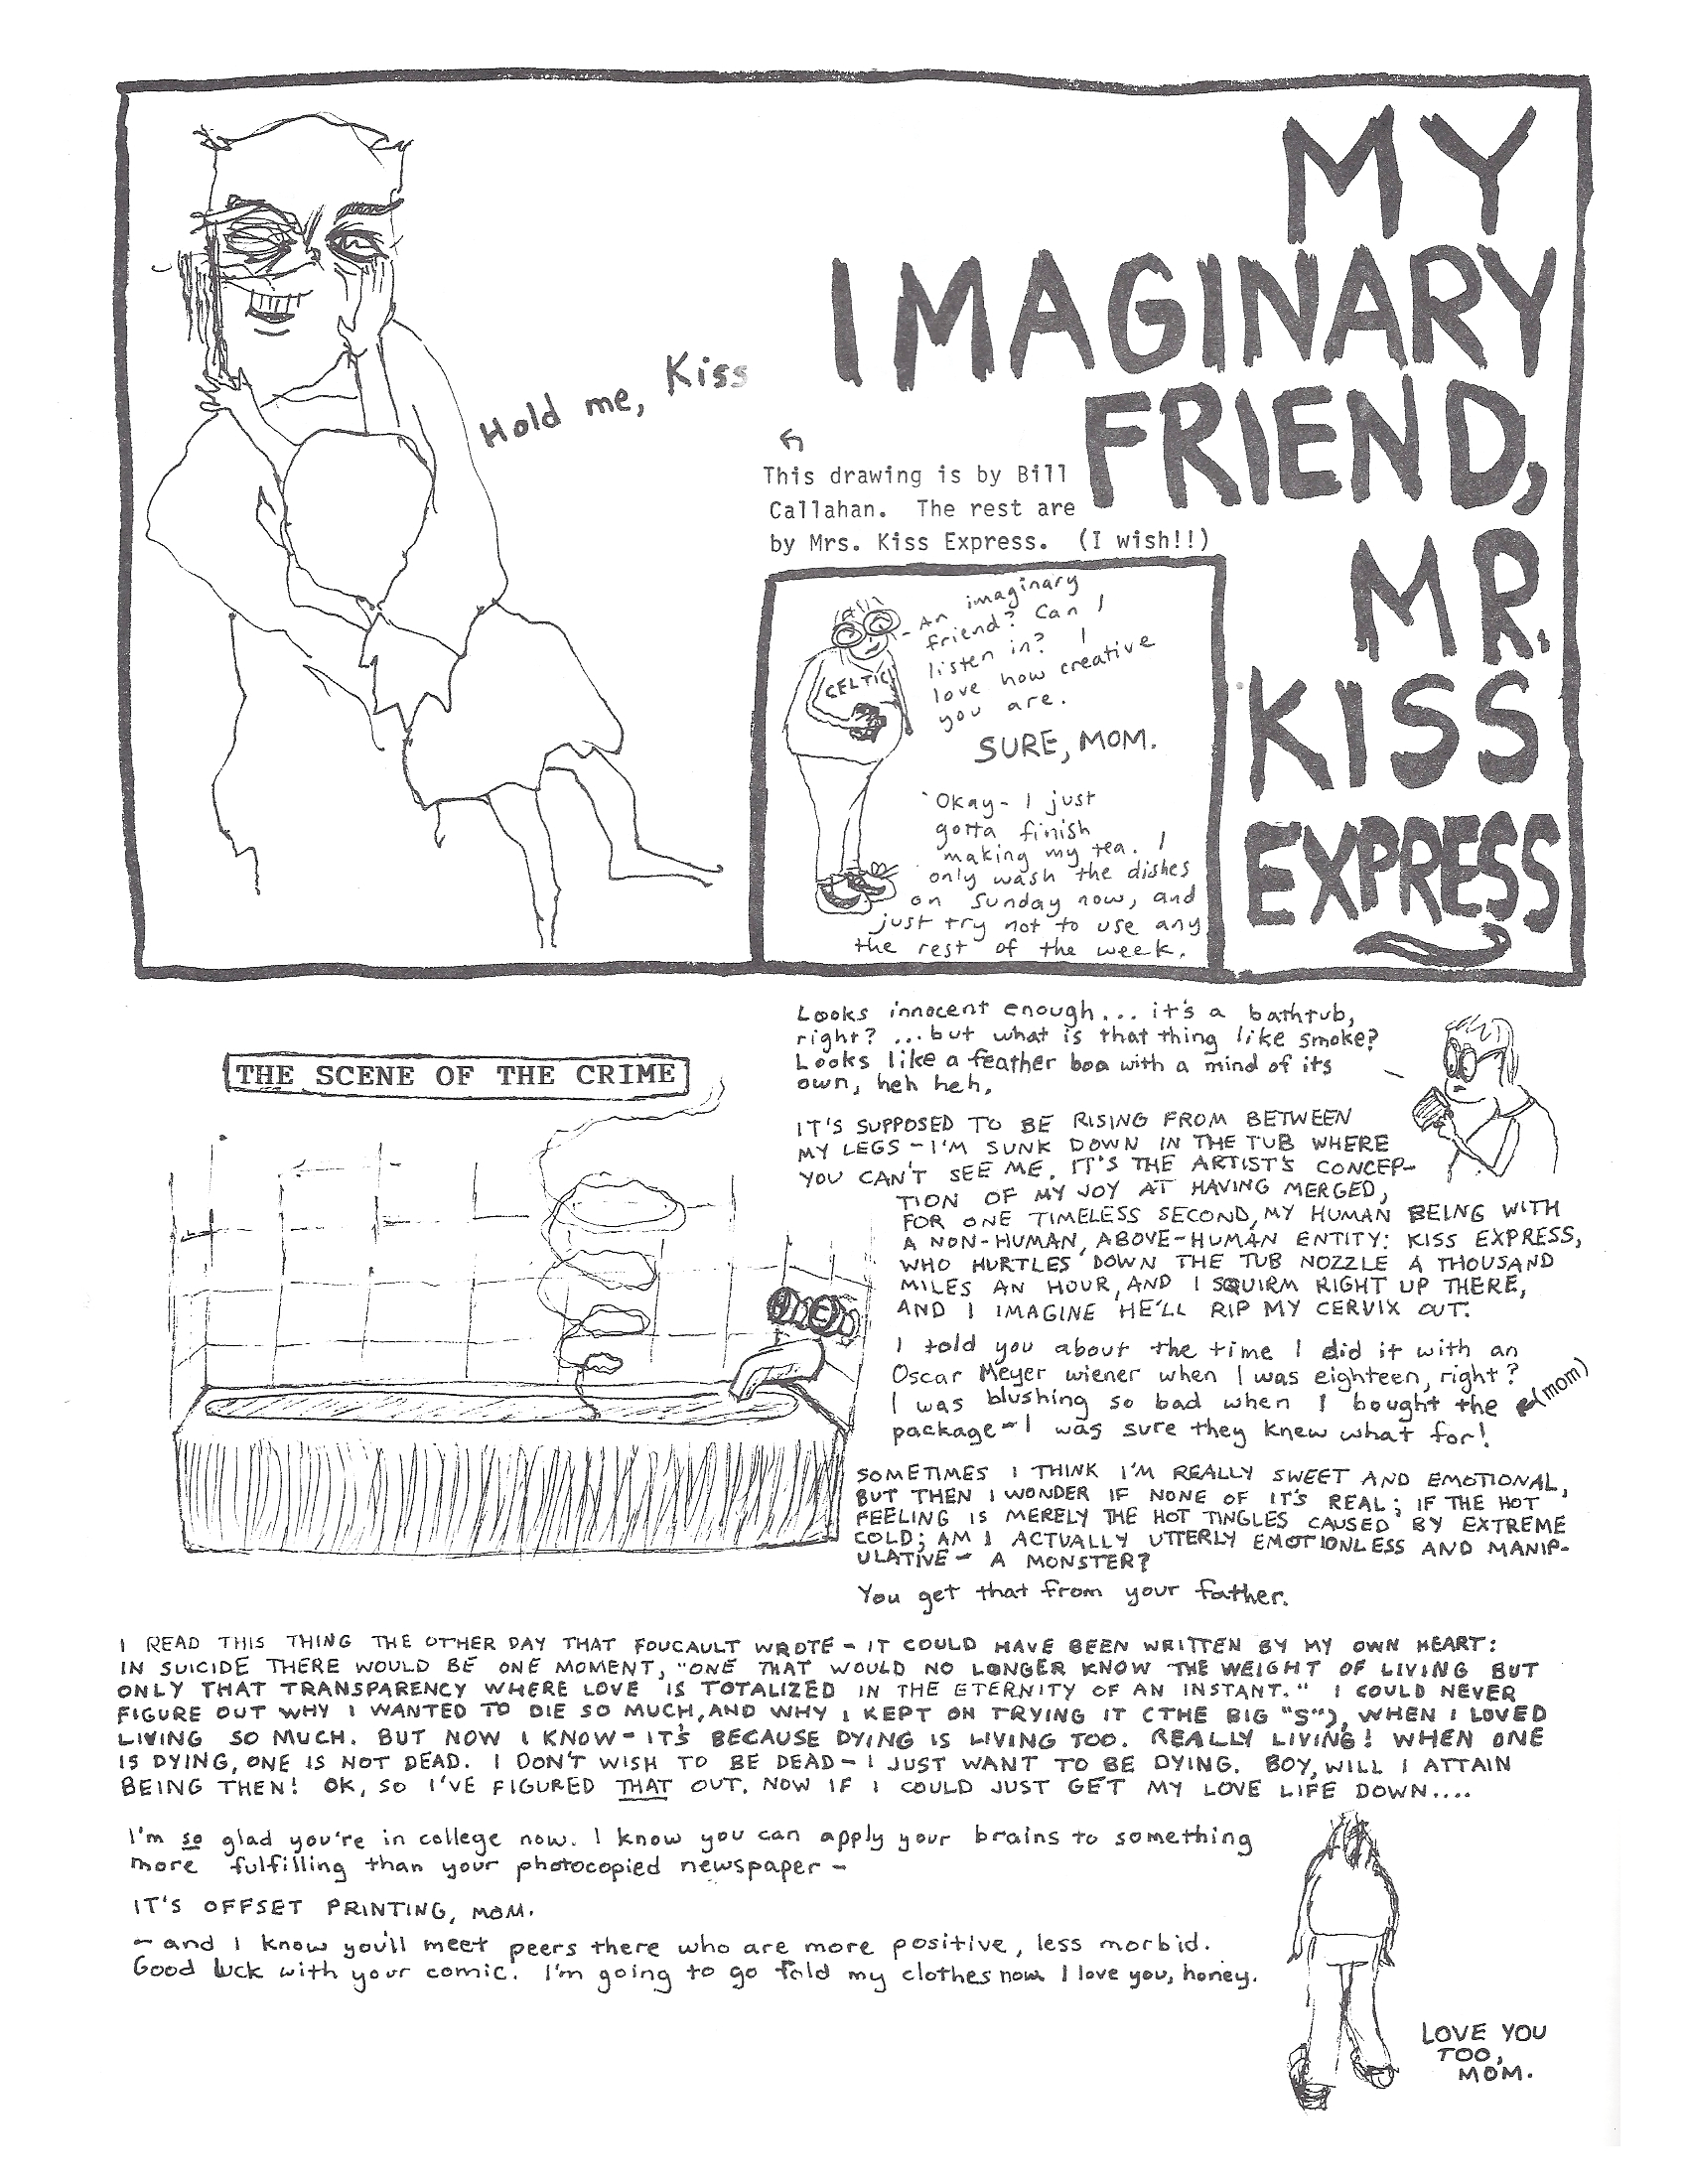 MY
IMAGINARY
FRIEND,
MR.
KISS
EXPRESS
Hold me, Kiss
This drawing is by Bill
Callahan. The rest are
by Mrs. Kiss Express. (I wish!!)
CELTIC
- An imaginary
friend? Can I
listen in? I
love how creative
you are.
SURE, MOM.
Okay- I just
gotta finish
making my tea. I
only wash the dishes
on Sunday now, and
just try not to use any
the rest of the week.
THE SCENE OF THE CRIME
Looks innocent enough... it's a bathtub,
right? ...but what is that thing like smoke?
Looks like a feather boa with a mind of its
own, heh heh.
IT'S SUPPOSED TO BE RISING FROM BETWEEN
MY LEGS - I'M SUNK DOWN IN THE TUB WHERE
YOU CAN'T SEE ME. IT'S THE ARTIST'S CONCEP-
TION OF MY JOY AT HAVING MERGED,
FOR ONE TIMELESS SECOND, MY HUMAN BEING WITH
A NON-HUMAN, ABOVE-HUMAN ENTITY: KISS EXPRESS,
WHO HURTLES DOWN THE TUB NOZZLE A THOUSAND
MILES AN HOUR, AND I SQUIRM RIGHT UP THERE,
AND I IMAGINE HE'LL RIP MY CERVIX OUT.
I told you about the time I did it with an
Oscar Meyer wiener when I was eighteen, right?
I was blushing so bad when I bought the
package - I was sure they knew what for!
(mom)
SOMETIMES I THINK I'M REALLY SWEET AND EMOTIONAL,
BUT THEN I WONDER IF NONE OF IT'S REAL; IF THE HOT
FEELING IS MERELY THE HOT TINGLES CAUSED BY EXTREME
COLD; AM I ACTUALLY UTTERLY EMOTIONLESS AND MANIP-
ULATIVE - A MONSTER?
You get that from your father.
I READ THIS THING THE OTHER DAY THAT FOUCAULT WROTE - IT COULD HAVE BEEN WRITTEN BY MY OWN HEART:
IN SUICIDE THERE WOULD BE ONE MOMENT, "ONE THAT WOULD NO LONGER KNOW THE WEIGHT OF LIVING BUT
ONLY THAT TRANSPARENCY WHERE LOVE IS TOTALIZED IN THE ETERNITY OF AN INSTANT." I COULD NEVER
FIGURE OUT WHY I WANTED TO DIE SO MUCH, AND WHY I KEPT ON TRYING IT (THE BIG "S"), WHEN I LOVED
LIVING SO MUCH. BUT NOW I KNOW - IT'S BECAUSE DYING IS LIVING TOO. REALLY LIVING! WHEN ONE
IS DYING, ONE IS NOT DEAD. I DON'T WISH TO BE DEAD - I JUST WANT TO BE DYING. BOY, WILL I ATTAIN
BEING THEN! OK, SO I'VE FIGURED THAT OUT. NOW IF I COULD JUST GET MY LOVE LIFE DOWN....
I'm so glad you're in college now. I know you can apply your brains to something
more fulfilling than your photocopied newspaper -
IT'S OFFSET PRINTING, MOM.
- and I know you'll meet peers there who are more positive, less morbid.
Good luck with your comic. I'm going to go fold my clothes now. I love you, honey.
LOVE YOU
TOO,
MOM.